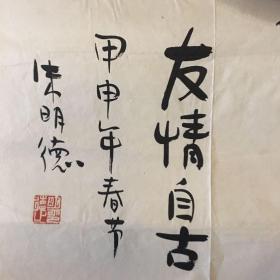 友情自古
甲申年春节
朱明德